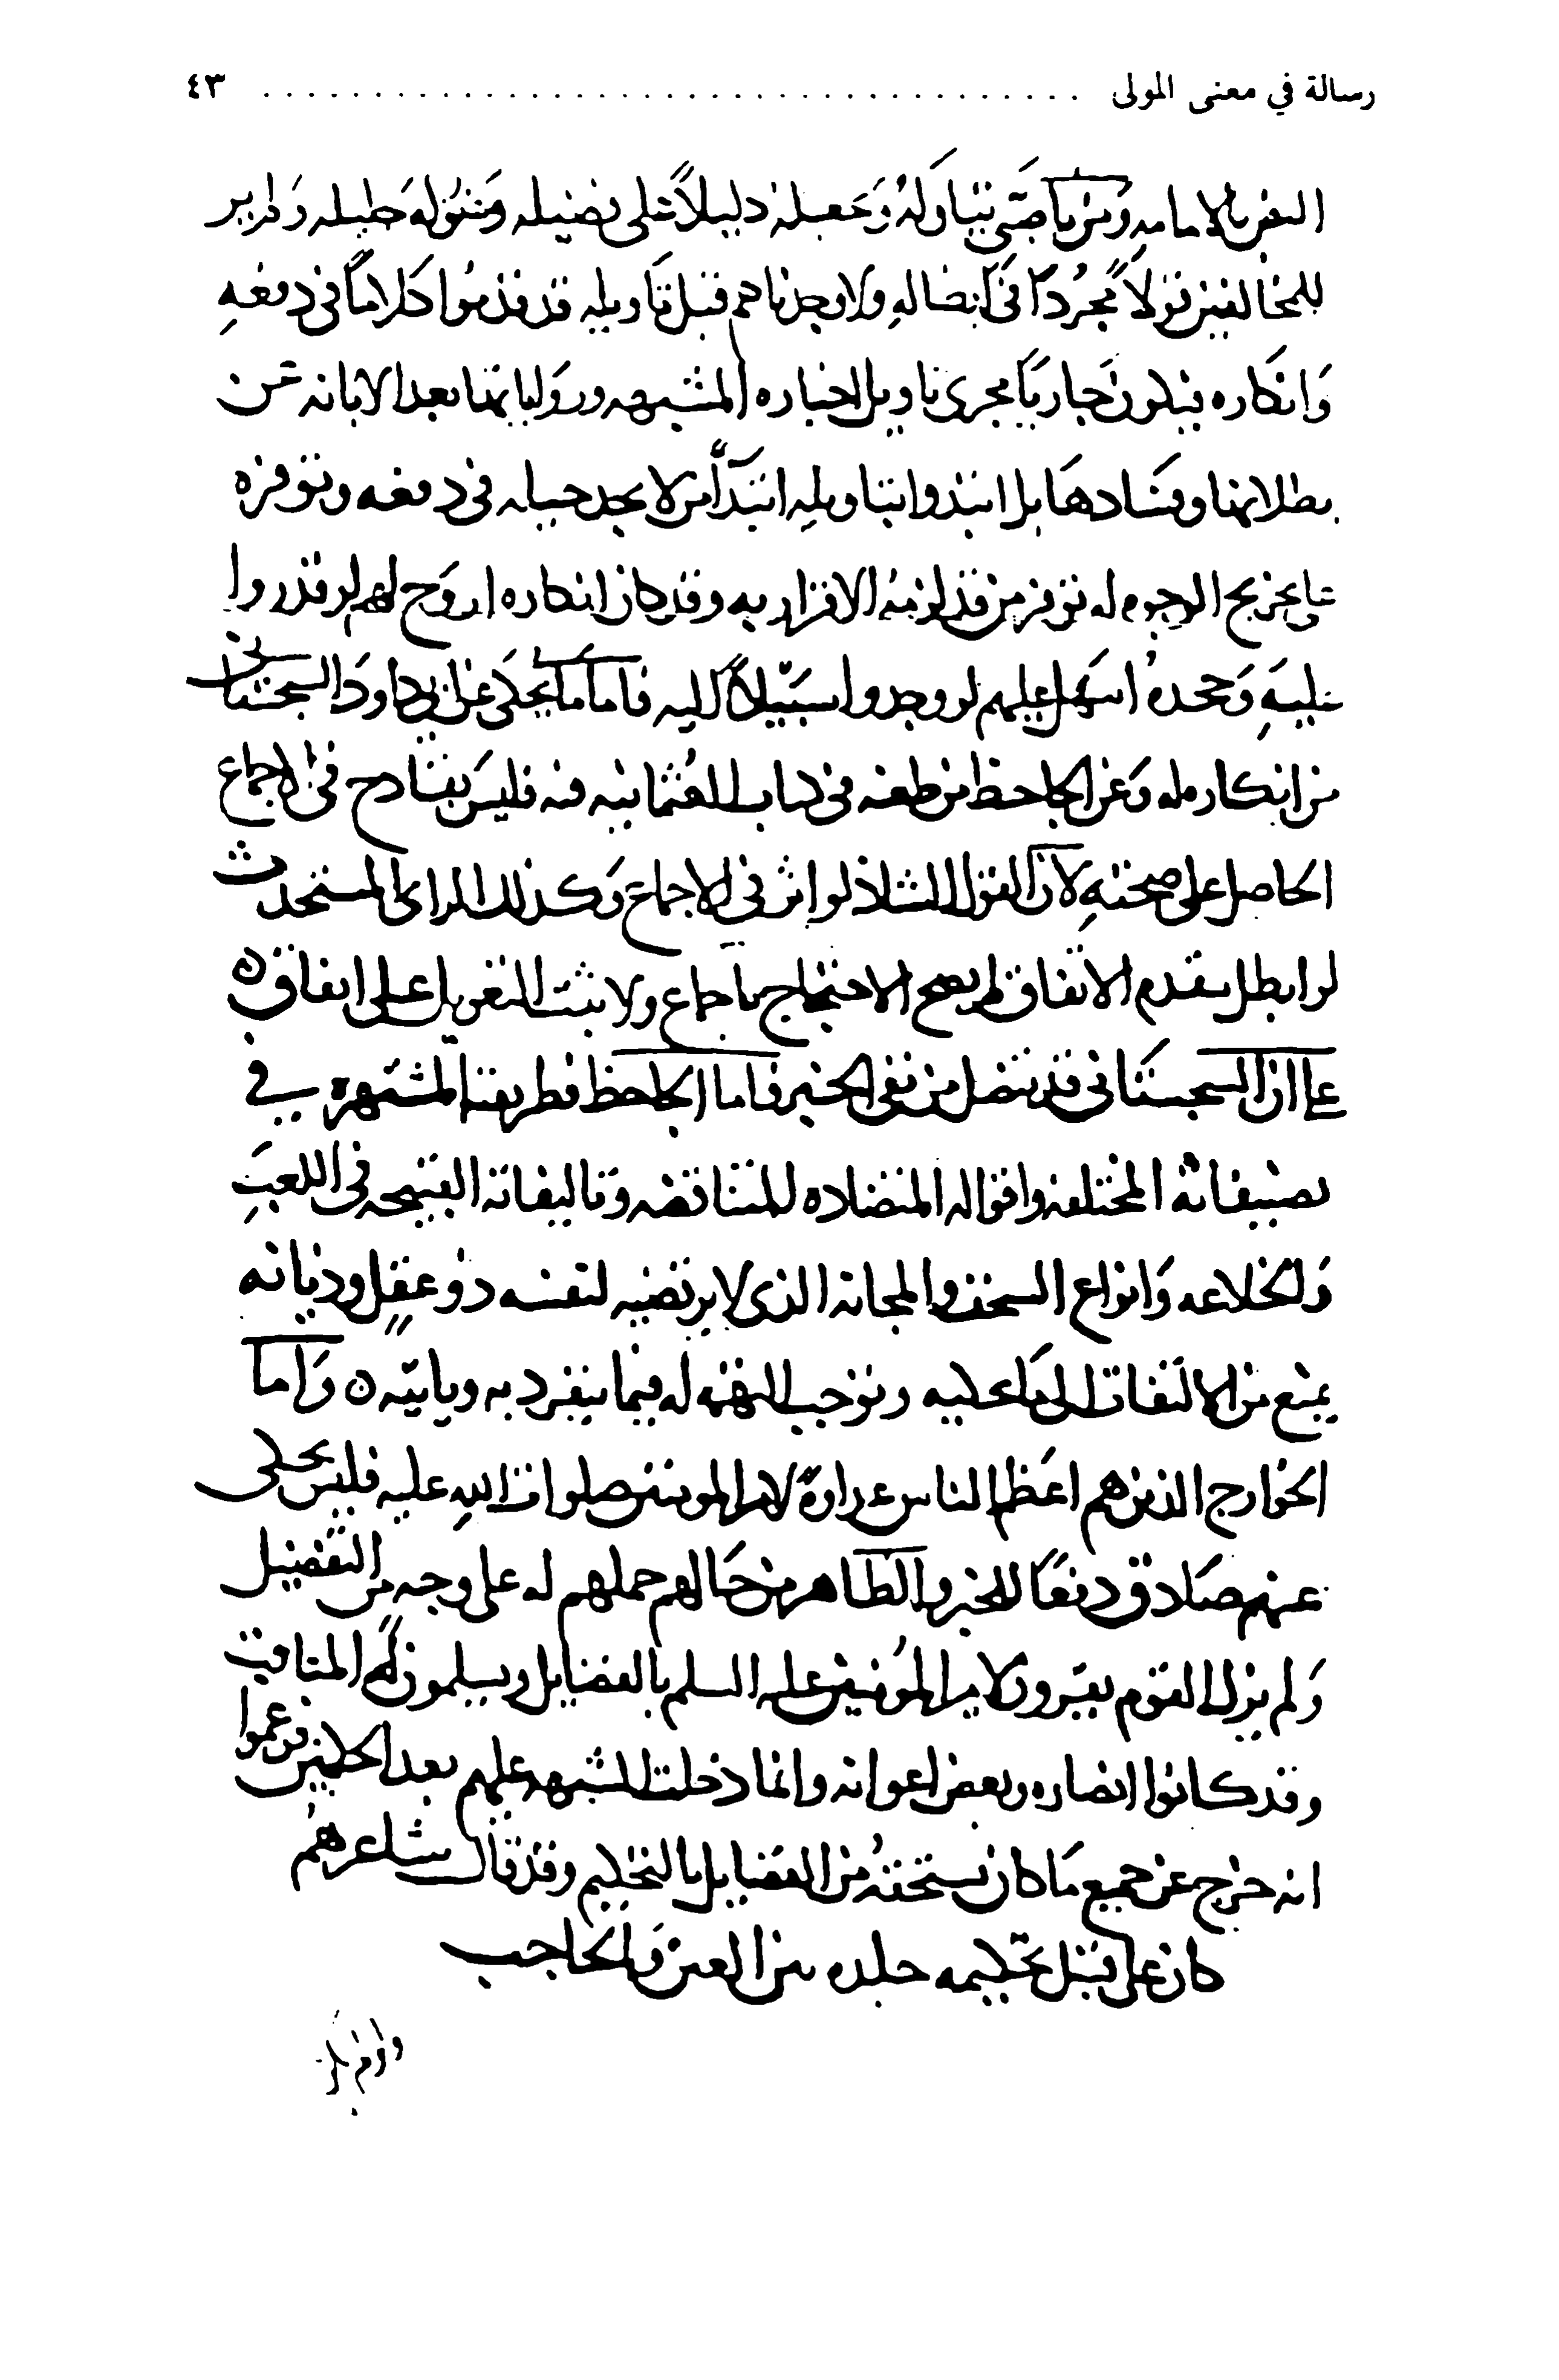 رسالة في معنى المولى ........................................ ٤٣
النص بالامامه ومن ناصبي يتاوله ويجعله دليلاً على فضيله ومنزله جليله ولم ير
للمخالفين قولاً مجرداً في ابطاله ولا وجدناهم قبل تاويله قد قدموا كلاماً في دفعه
وانكاره فيكون جارياً مجرى تاويل اخبار المشبهه وروايانها بعد الابانه عن
بطلانها وفسادها بل ابتدوا بتاويله ابتدآ من لا يجد حيله في دفعه وتوفره
على تخريج الوجوه له توفر من قد لزمه الاقرار به وقد كان انكاره اروح لهم لو قدروا
عليه وجحده اسهل عليهم لو وجدوا سبيلاً اليه فاما ما يحكى عن ابن ابى داود السجستانى
من انكار له وعن الجاحظ من طعنه في كتاب العثمانيه فيه فليس بقادح في الاجماع
الحاصل على صحته لان القول الشاذ لو اثر في الاجماع وكذلك الراى المستحدث
لو ابطل مقدم الاتفاق لم يصح الاحتجاج باجماع ولا يثبت التعويل على اتفاق ه
على ان السجستانى قد تنصل من نفى الخبر فاما الجاحظ فطريقته المشتهره في
تصنيفاته المختلفه واقواله المتضاده المتناقضه وتاليفاته القبيحه في اللعب
والخلاعه وانواع السخف والمجانه الذى لا يرتضيه لنفسه ذو عقل وديانه
يمنع من الالتفات الى ما يحكيه ويوجب التهمه له فيما ينفرد به وياتيه ه واما
الخوارج الذين هم اعظم الناس عداوة لامير المومنين صلوات الله عليه فليس يحكى
عنهم صادق دفعاً للخبر والظاهر من حالهم حملهم له على وجه من التفضيل
ولم يزل القوم يقرون لامير المومنين عليه السلم بالفضايل ويسلمون له المناقب
وقد كانوا انصاره وبعض اعوانه وانما دخلت الشبهه عليهم بعد الحكمين فزعموا
انه خرج عن جميع ما كان يستحقه من الفضايل بالتحكيم وقد قال شاعرهم
كان على قبل تحكيمه جلده بين العين والحاجب